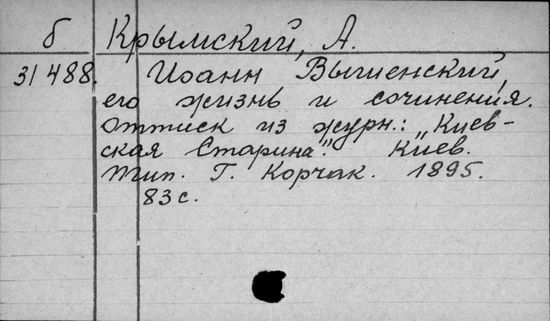 б Крымский, А.
31488. Иоанн Вышенский,
его жизнь и сочинения.
Оттиск из журн.: "Киев-
ская Старина". Киев.
Тип. Г. Корчак. 1895.
83 с.